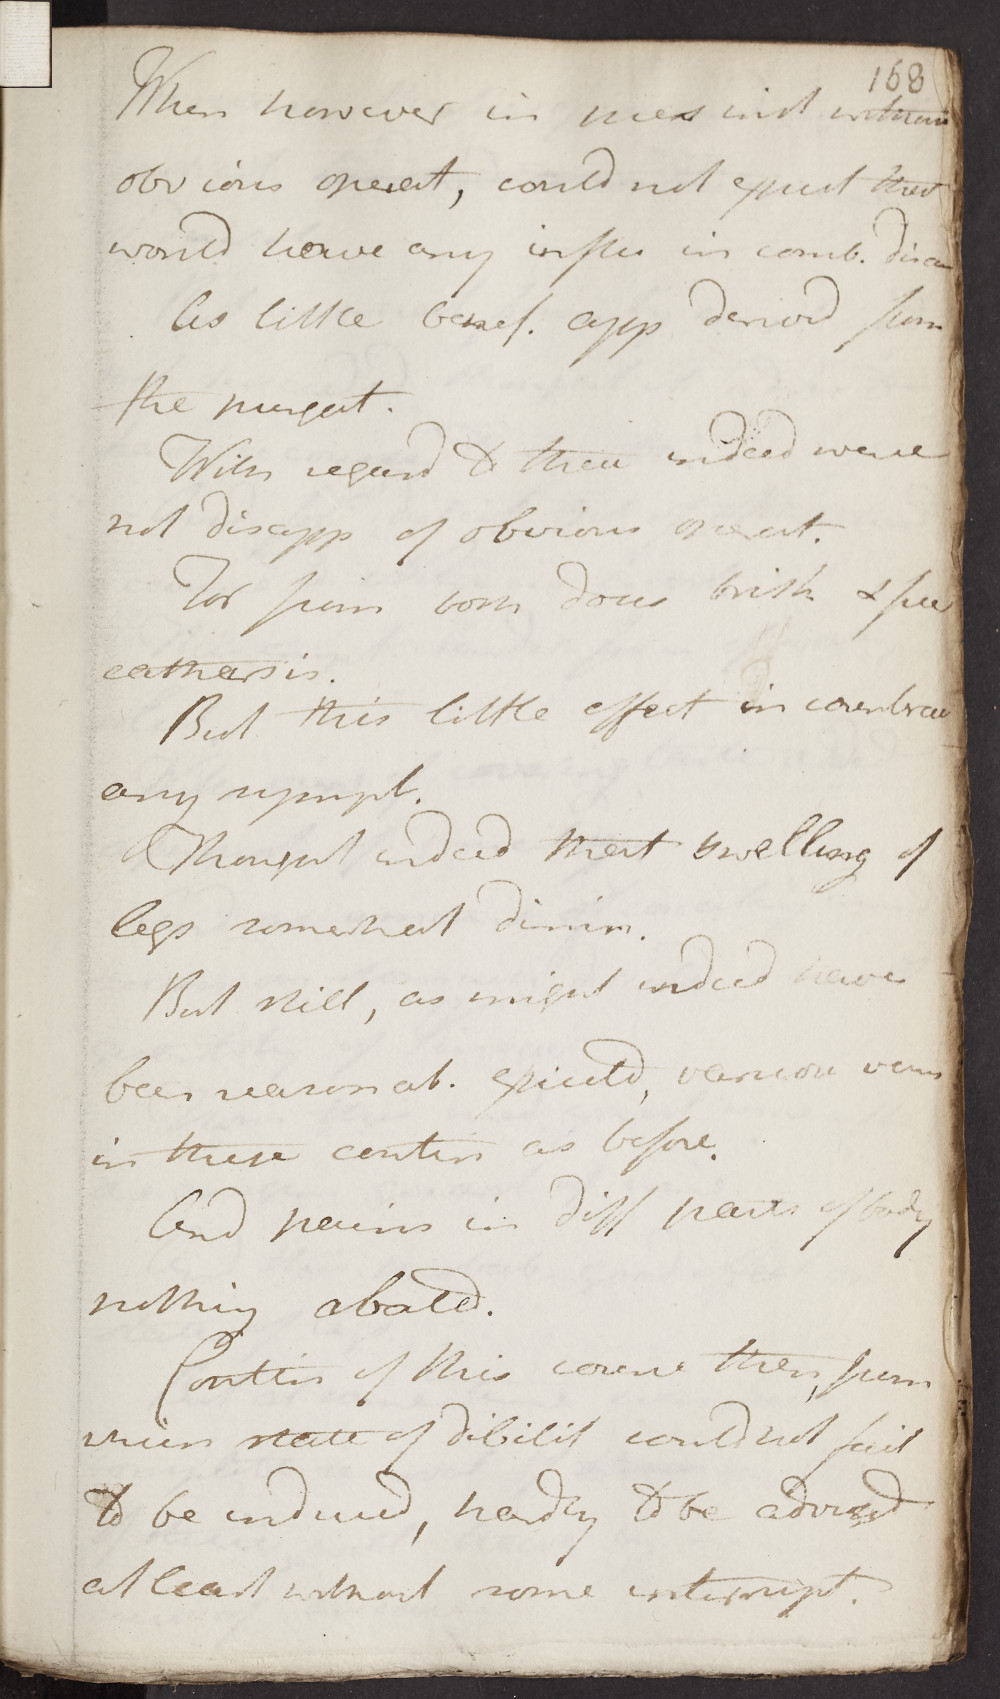 168
When however in            without
obvious operat, could not expect that
would have any influ in comb. disea
As little benef. app derived from
the purgat.
With regard to these indeed were
not disapp of obvious operat.
For from both doses brisk & free
catharsis.
But this little effect in
any sympt.
Thought indeed that swelling of
legs somewhat dimin.
But still, as might indeed have
been reasonab. expected, various
in these contin as before.
And pains in diff parts of body
nothing abated.
Contin of this course then, from
which state of debilit could not fail
to be induced, hardly to be advised
at least without some interrupt.